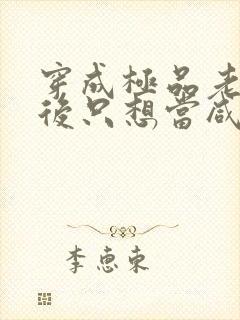 穿成極品老
後只想當咸
李惠東